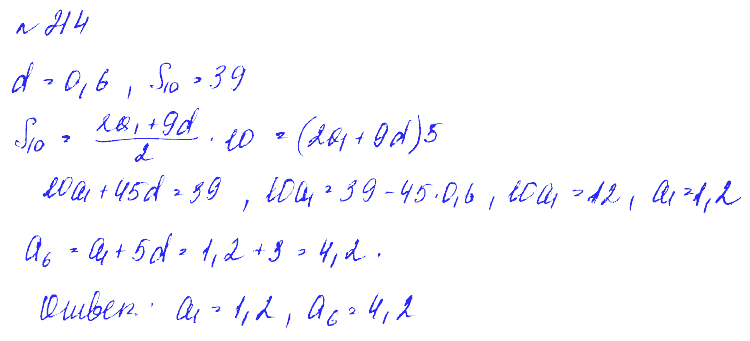 № 214
d = 0,6 , S₁₀ = 39
S₁₀ = (2a₁ + 9d)/2 · 10 = (2a₁ + 9d)5
10a₁ + 45d = 39 , 10a₁ = 39 - 45·0,6 , 10a₁ = 12 , a₁ = 1,2
a₆ = a₁ + 5d = 1,2 + 3 = 4,2 .
Ответ: a₁ = 1,2 , a₆ = 4,2